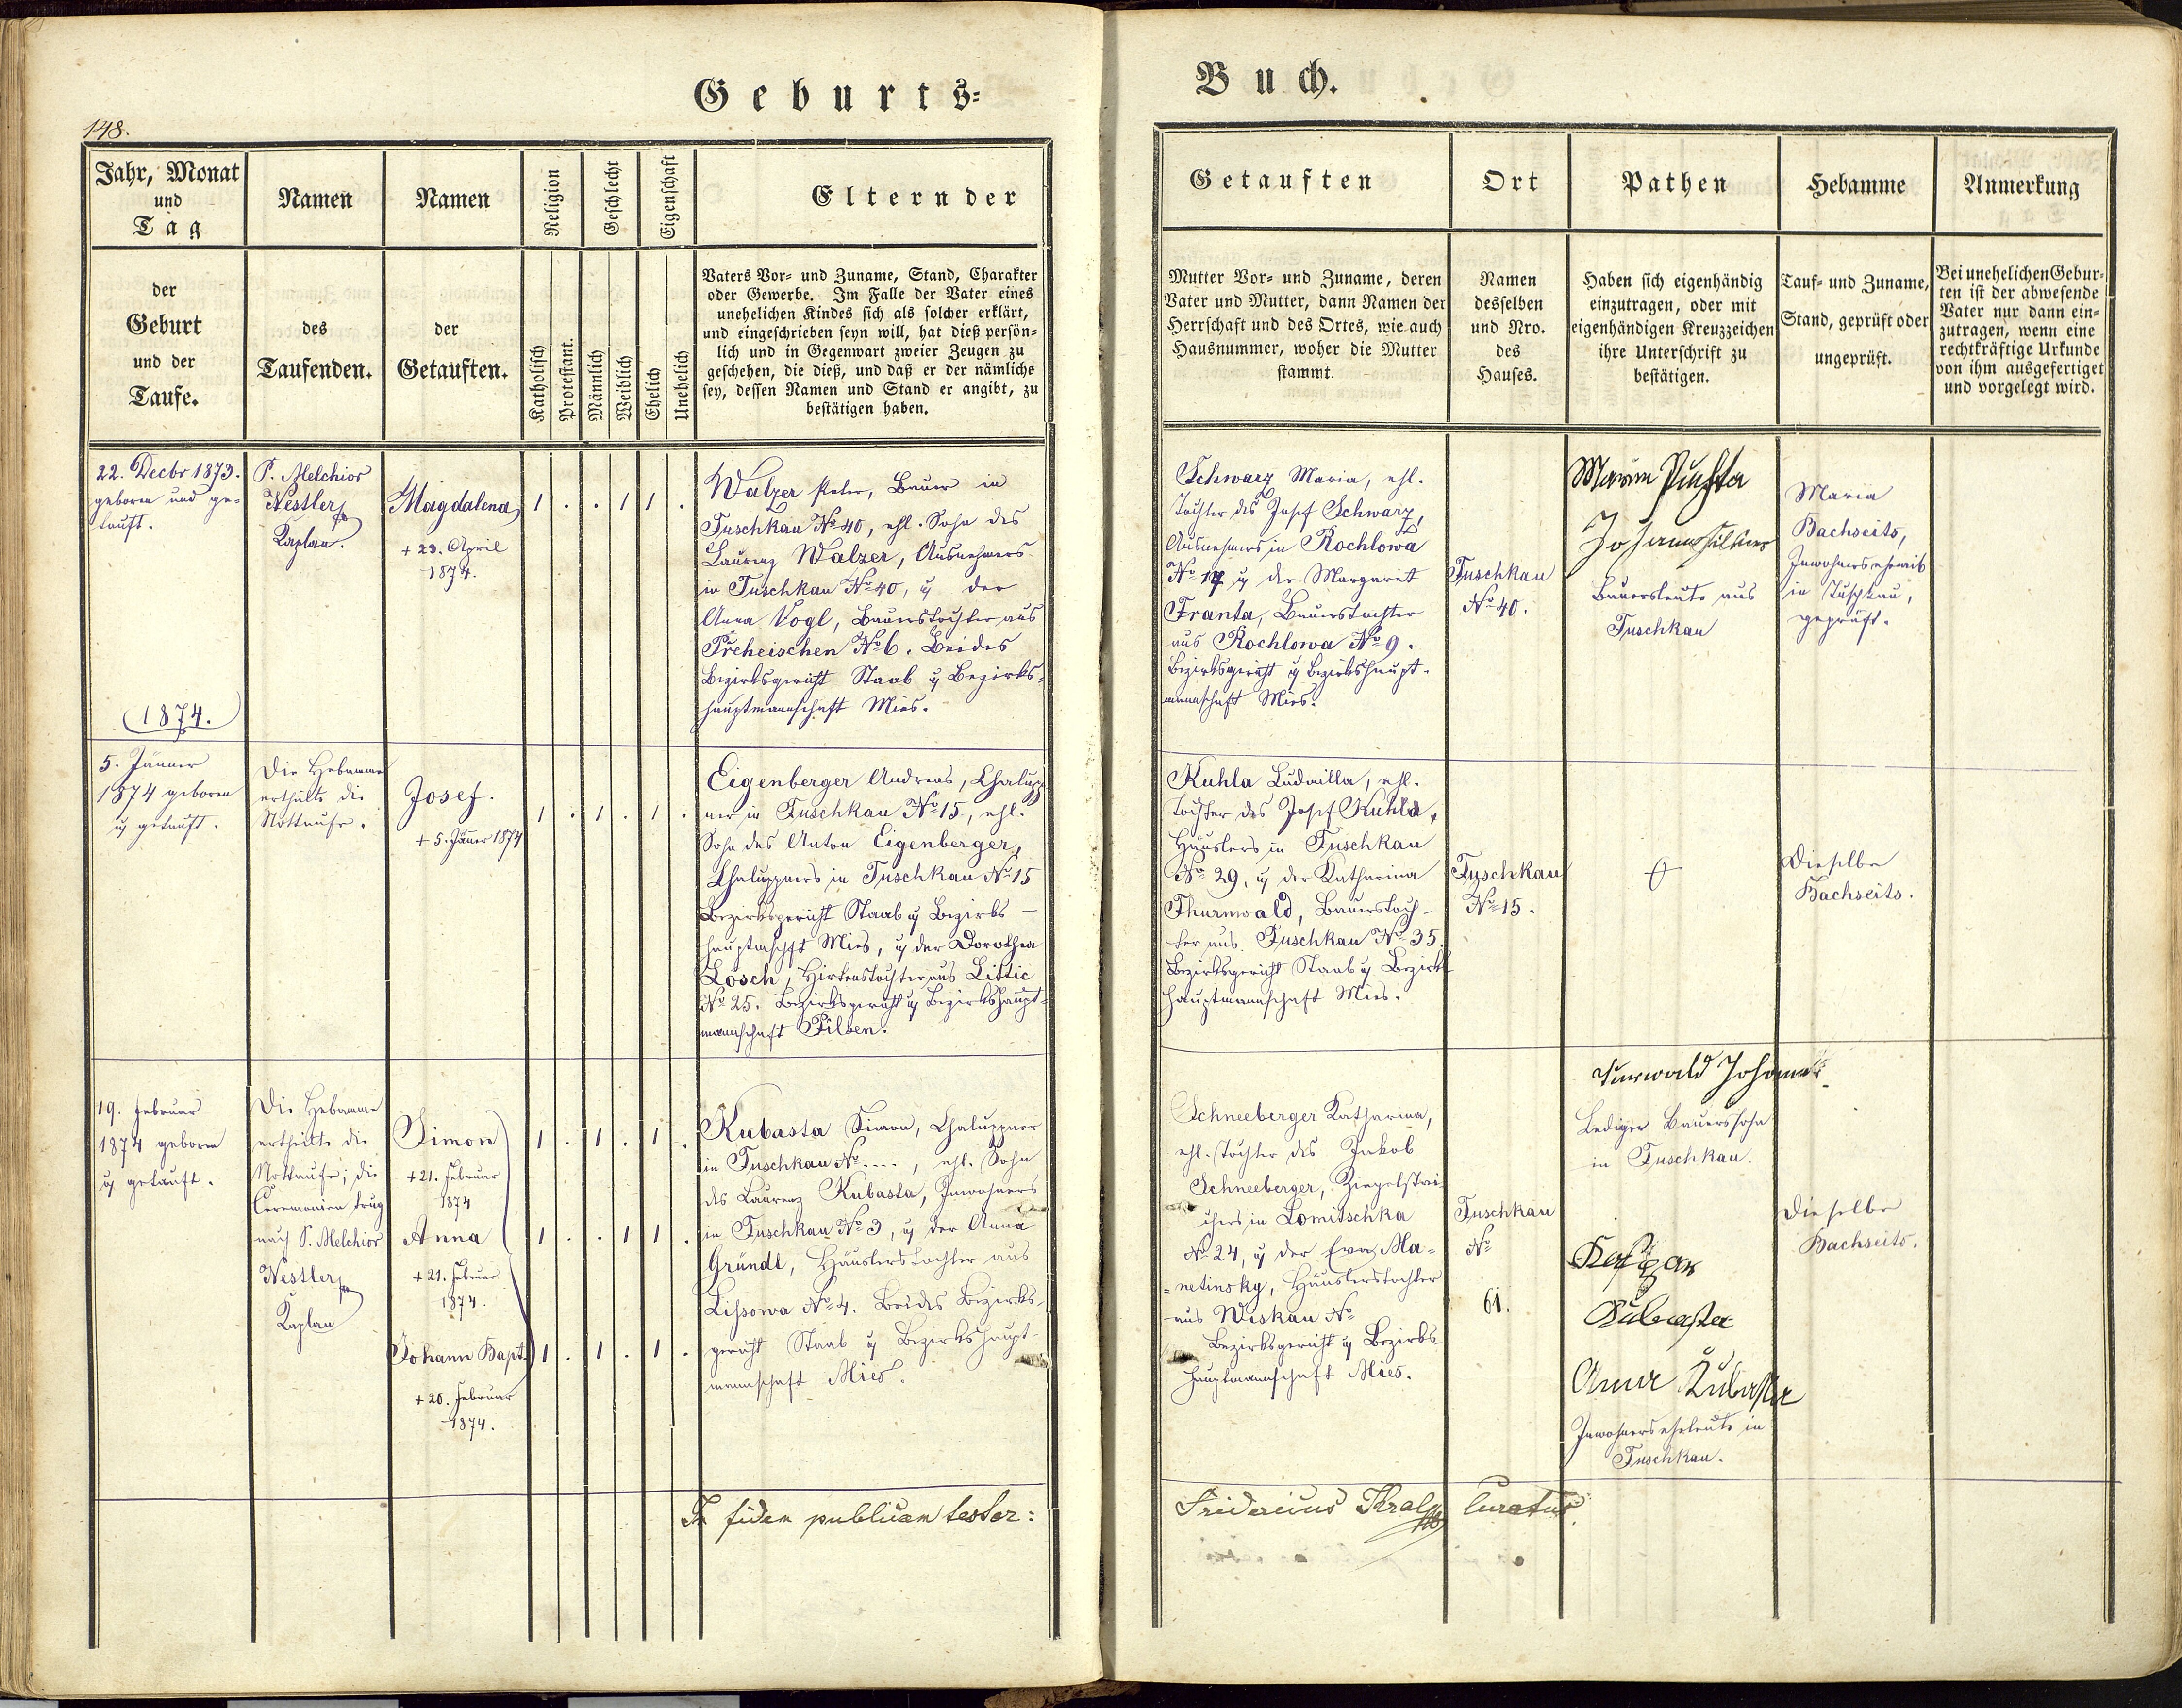 Geburts-
Buch.
148.
Jahr, Monat
und
Tag
der
Geburt
und der
Taufe.
Namen
des
Taufenden.
Namen
der
Getauften.
Religion
Katholisch
Protestamt.
Geschlecht
Männlich
Weiblich
Eigenschaft
Ehelich
Unehelich
Eltern der
Vaters Vor- und Zuname, Stand, Charakter
oder Gewerbe. Im Falle der Vater eines
unehelichen Kindes sich als solcher erklärt,
und eingeschrieben seyn will, hat dieß persön-
lich und in Gegenwart zweier Zeugen zu
geschehen, die dieß, und daß er der nämliche
sey, dessen Namen und Stand er angibt, zu
bestätigen haben.
Getauften
Mutter Vor- und Zuname, deren
Vater und Mutter, dann Namen der
Herrschaft und des Ortes, wie auch
Hausnummer, woher die Mutter
stammt.
Ort
Namen
desselben
und Nro.
des
Hauses.
Pathen
Haben sich eigenhändig
einzutragen, oder mit
eigenhändigen Kreuzzeichen
ihre Unterschrift zu
bestätigen.
Hebamme
Tauf- und Zuname,
Stand, geprüft oder
ungeprüft.
Anmerkung
Bei unehelichen Gebur-
ten ist der abwesende
Vater nur dann ein-
zutragen, wenn eine
rechtkräftige Urkunde
von ihm ausgefertiget
und vorgelegt wird.
22. Decbr 1873.
geboren und ge-
tauft.
P. Melchior
Nestler
Kaplan.
Magdalena
+ 23. April
1874.
1 . . 1 1 .
Walzer Peter, Bauer in
Tuschkau No 40, ehl. Sohn des
Laurenz Walzer, Ausnehmers
in Tuschkau No 40, u der
Anna Vogl, Bauerstochter aus
Přeheischen No 6. Beides
Bezirksgericht Staab u Bezirks-
hauptmannschaft Mies.
Schwarz Maria, ehl.
Tochter des Josef Schwarz,
Ausnehmers in Rochlowa
No 17 u der Margaret
Franta, Bauerstochter
aus Rochlowa No 9.
Bezirksgericht u Bezirkshaupt-
mannschaft Mies.
Tuschkau
No 40.
Bauersleute aus
Tuschkau
Maria
Bachseits,
Inwohnerseheweib
in Tuschkau,
geprüft.
1874.
5. Jänner
1874 geboren
u getauft.
Die Hebamme
ertheilte die
Nottaufe.
Josef.
+ 5. Jäner 1874
1 . 1 . 1 .
Eigenberger Andreas, Chalupp
ner in Tuschkau No 15, ehl.
Sohn des Anton Eigenberger,
Chaluppners in Tuschkau No 15
Bezirksgericht Staab u Bezirks-
hauptmschft Mies, u der Dorothea
Lösch, Hirtenstochter aus Littic
No 25. Bezirksgericht u Bezirkshaupt-
mannschaft Pilsen.
Kuhla Ludmilla, ehl.
Tochter des Josef Kuhla,
Häuslers in Tuschkau
No 29, u der Katharina
Thurnwald, Bauerstoch-
ter aus Tuschkau No 35.
Bezirksgericht Staab u Bezirks
hauptmannschaft Mies.
Tuschkau
No 15.
Dieselbe
Bachseits.
19. Februar
1874 geboren
u getauft.
Die Hebamme
ertheilte die
Nottaufe; die
Ceremonien trug
nach P. Melchior
Nestler
Kaplan
Simon
+ 21. Februar
1874
Anna
+ 21. Februar
1874.
Johann Bapt.
+ 20. Februar
1874.
1 . 1 . 1 .
1 . . 1 1 .
1 . 1 . 1 .
Kubasta Simon, Chaluppner
in Tuschkau No ...., ehl. Sohn
des Laurenz Kubasta, Inwohners
in Tuschkau No 3, u der Anna
Gründl, Häuslerstochter aus
Lissowa No 4. Beides Bezirks-
gericht Staab u Bezirkshaupt-
mannschaft Mies.
Schneeberger Katharina,
ehl. Tochter des Jakob
Schneeberger, Ziegelstrei-
chers in Lomitschka
No 24, u der Eva Ma-
netinsky, Häuslerstochter
aus Wiskau No
Bezirksgericht u Bezirks-
hauptmannschaft Mies.
Tuschkau
No
61.
Turwald Johann
Lediger Bauerssohn
in Tuschkau.
Kubasta
Anna Kubasta
Inwohnerseheleute in
Tuschkau.
Dieselbe
Bachseits.
In fidem publicam testor:
Fridericus Kral Curatus.